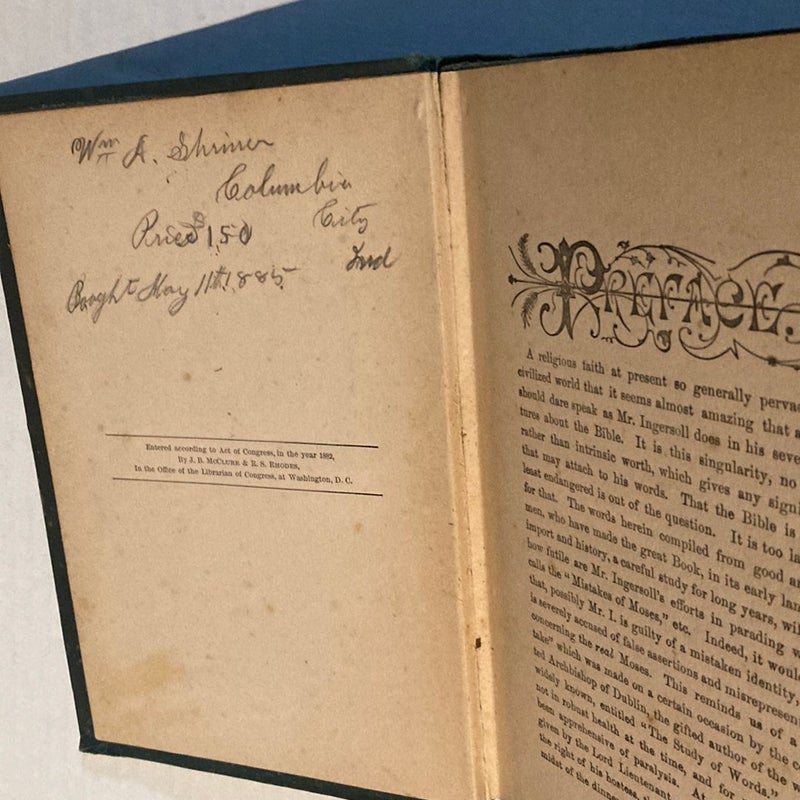 Wm A. Shriner
Columbia
City
Priced 1.50
Ind
Bought May 11th 1885
Entered according to Act of Congress, in the year 1882,
By J. B. McClure & R. S. Rhodes,
In the Office of the Librarian of Congress, at Washington, D. C.
PREFACE.
A religious faith at present so generally perva
civilized world that it seems almost amazing that a
should dare speak as Mr. Ingersoll does in his seve
tures about the Bible. It is this singularity, no
rather than intrinsic worth, which gives any signi
that may attach to his words. That the Bible is
least endangered is out of the question. It is too la
for that. The words herein compiled from good a
men, who have made the great Book, in its early lan
import and history, a careful study for long years, wi
how futile are Mr. Ingersoll's efforts in parading w
calls the "Mistakes of Moses," etc. Indeed, it woul
that, possibly Mr. I. is guilty of a mistaken identity,
is severely accused of false assertions and misrepresen
concerning the real Moses. This reminds us of a
take" which was made on a certain occasion by the c
ted Archbishop of Dublin, the gifted author of the w
widely known, entitled "The Study of Words."
not in robust health at the time, and for
been apprehensive of paralysis. At
given by the Lord Lieutenant
the right of his hostess, th
midst of the dinne